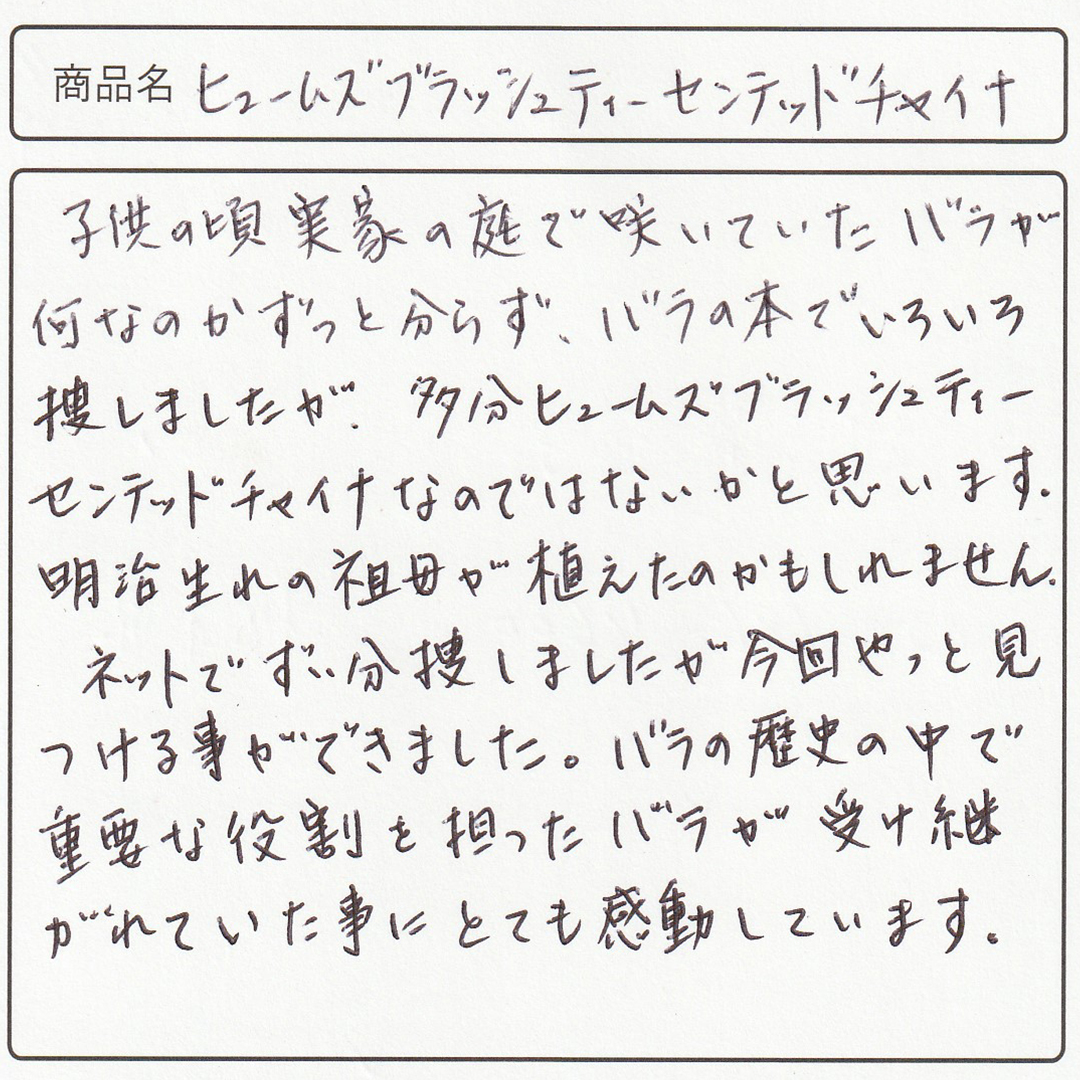 商品名 ヒュームズブラッシュティーセンテッドチャイナ
子供の頃実家の庭で咲いていたバラが
何なのかずっと分らず、バラの本でいろいろ
捜しましたが、多分ヒュームズブラッシュティー
センテッドチャイナなのではないかと思います。
明治生れの祖母が植えたのかもしれません。
ネットでずい分捜しましたが今回やっと見
つける事ができました。バラの歴史の中で
重要な役割を担ったバラが受け継
がれていた事にとても感動しています。